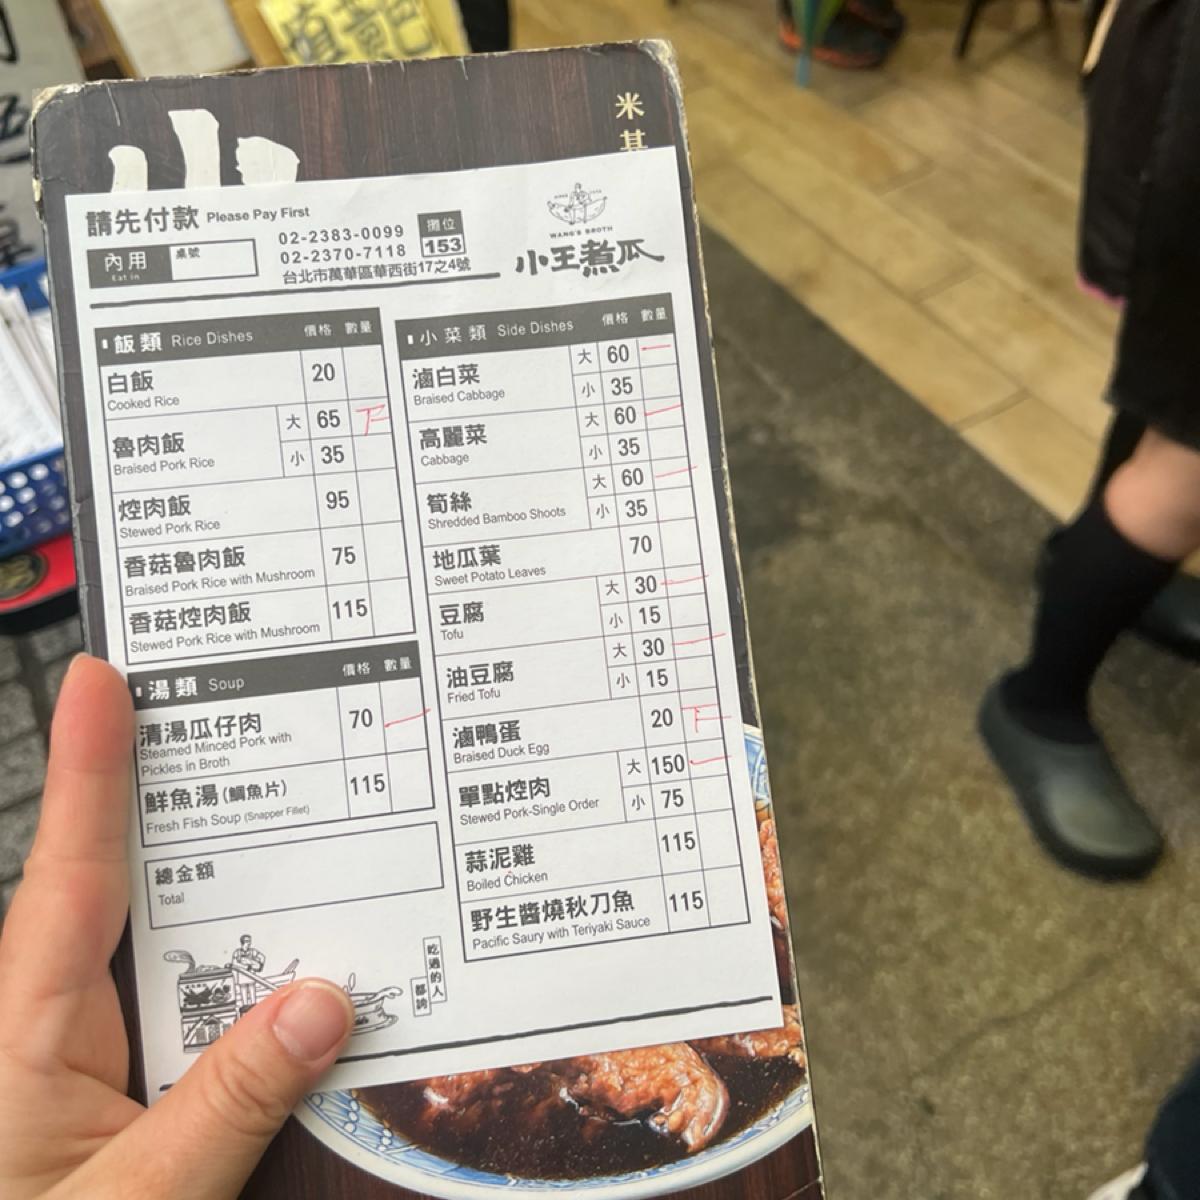 米其
小
請先付款 Please Pay First
內用 Eat in 桌號
02-2383-0099
02-2370-7118
台北市萬華區華西街17之4號
攤位
153
WANG'S BROTH
小王煮瓜
飯類 Rice Dishes 價格 數量
白飯 20
Cooked Rice
魯肉飯 大 65 下
Braised Pork Rice 小 35
焢肉飯 95
Stewed Pork Rice
香菇魯肉飯 75
Braised Pork Rice with Mushroom
香菇焢肉飯 115
Stewed Pork Rice with Mushroom
湯類 Soup 價格 數量
清湯瓜仔肉 70 一
Steamed Minced Pork with
Pickles in Broth
鮮魚湯(鯛魚片) 115
Fresh Fish Soup (Snapper Fillet)
總金額
Total
吃過的人
都誇
小菜類 Side Dishes 價格 數量
滷白菜 大 60 一
Braised Cabbage 小 35
高麗菜 大 60 一
Cabbage 小 35
筍絲 大 60 一
Shredded Bamboo Shoots 小 35
地瓜葉 70
Sweet Potato Leaves
豆腐 大 30 一
Tofu 小 15
油豆腐 大 30 一
Fried Tofu 小 15
滷鴨蛋 20 下
Braised Duck Egg
單點焢肉 大 150 一
Stewed Pork-Single Order 小 75
蒜泥雞 115
Boiled Chicken
野生醬燒秋刀魚 115
Pacific Saury with Teriyaki Sauce